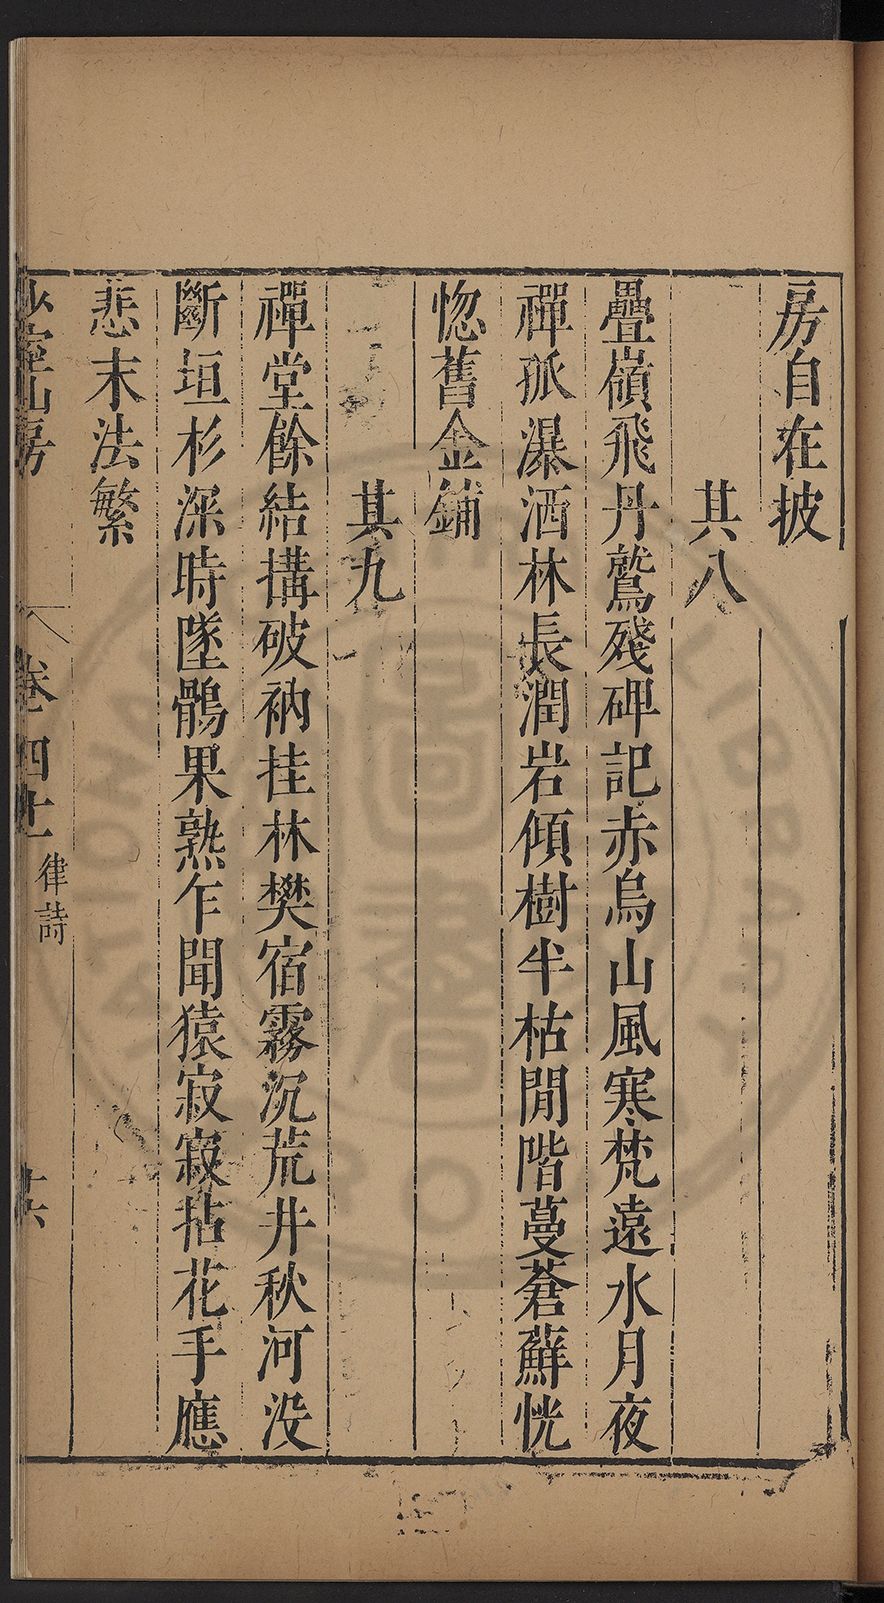 房自在披
其八
疊嶺飛丹鷲殘碑記赤烏山風寒梵遠水月夜
禪孤瀑洒林長潤岩傾樹半枯閒階蔓蒼蘚恍
惚舊金鋪
其九
禪堂餘結搆破衲挂林樊宿霧沉荒井秋河没
斷垣杉深時墜鶻果熟乍聞猿寂寂拈花手應
悲末法繁
少室山房
卷四十
律詩
十六